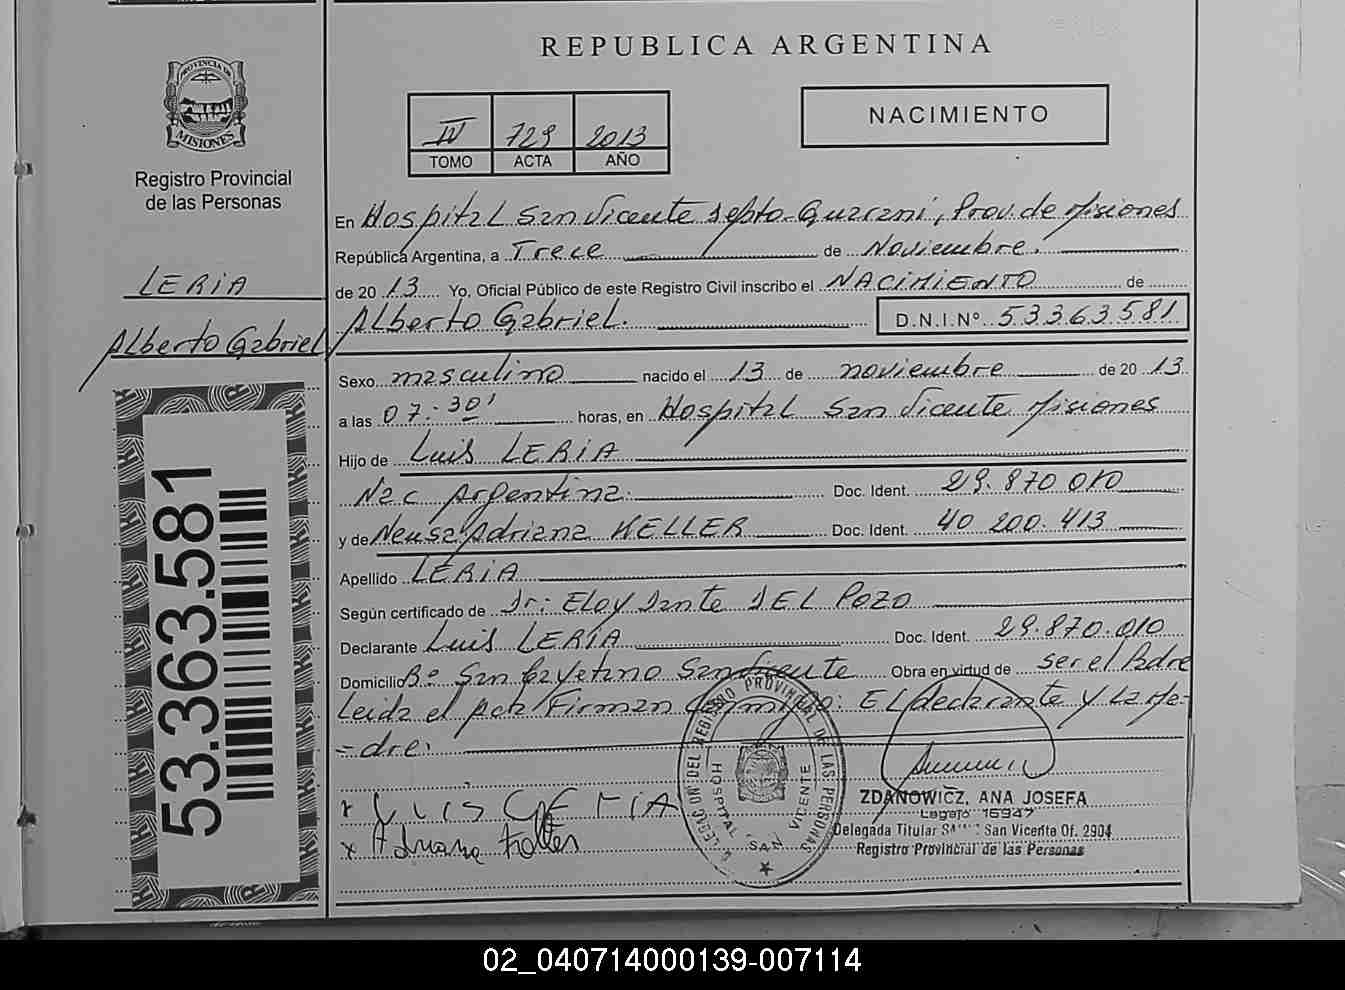 REPUBLICA ARGENTINA
PROVINCIA DE
MISIONES
Registro Provincial
de las Personas
IV 729 2013
TOMO ACTA AÑO
NACIMIENTO
LERIA
Alberto Gabriel
53.363.581
En Hospital San Vicente Depto-Guarani, Prov. de Misiones
República Argentina, a Trece de Noviembre.
de 2013 Yo, Oficial Público de este Registro Civil inscribo el NACIMIENTO de
Alberto Gabriel. D.N.I.Nº 53363581
Sexo masculino nacido el 13 de noviembre de 2013
a las 07:30' horas, en Hospital San Vicente Misiones
Hijo de Luis LERIA
Nac Argentina. Doc. Ident. 29.870 010
y de Neusa Adriana KELLER Doc. Ident. 40 200.413
Apellido LERIA
Según certificado de Dr: Eloy Dante DEL POZO
Declarante Luis LERIA Doc. Ident. 29.870.010
Domicilio Bº San Cayetano San Vicente Obra en virtud de ser el Padre
Leida el acta Firman conmigo: EL declarante y La Ma-
-dre.
x LUIS LERIA
x Adriana Keller
DEL REGISTRO PROVINCIAL DE LAS PERSONAS
HOSPITAL SAN VICENTE
ZDANOWICZ, ANA JOSEFA
Legajo 16947
Delegada Titular San Vicente Of. 2904
Registro Provincial de las Personas
02_040714000139-007114